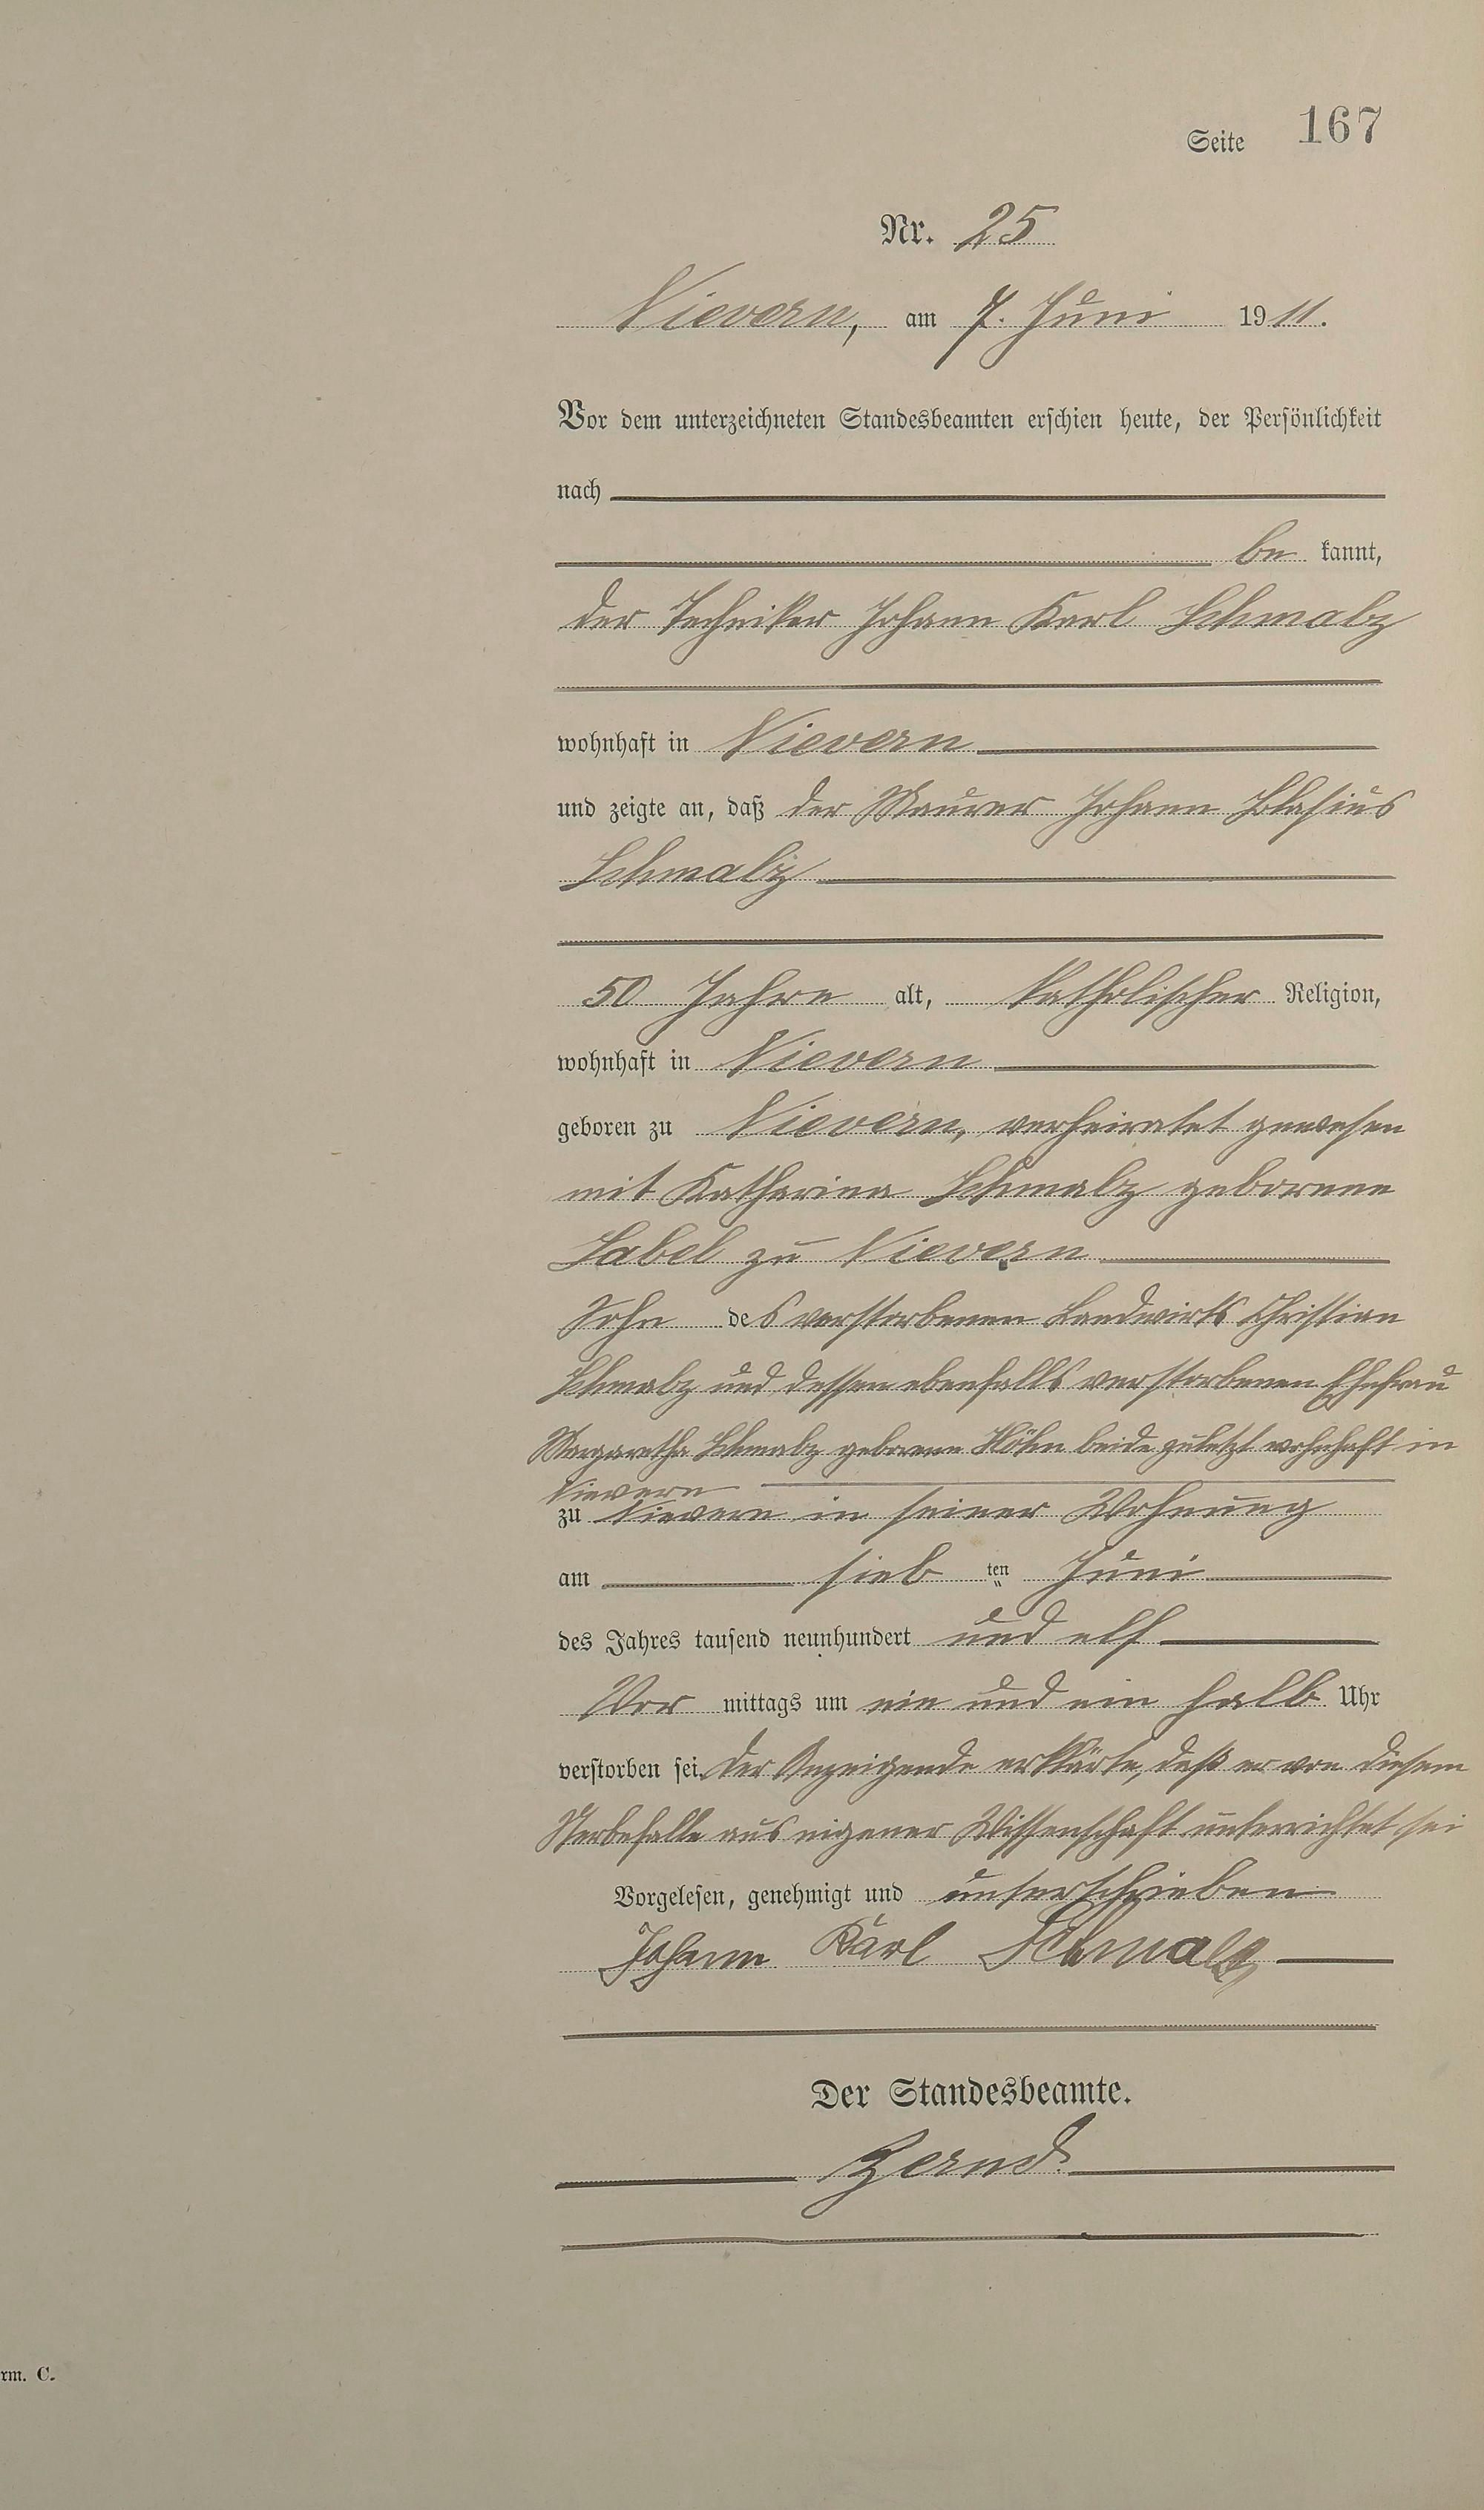 Seite 167
Nr. 25
Nievern, am 7. Juni 1911.
Vor dem unterzeichneten Standesbeamten erschien heute, der Persönlichkeit
nach
be kannt,
der Techniker Johann Karl Schmalz
wohnhaft in Nievern
und zeigte an, daß der Maurer Johann Blasius
Schmalz
50 Jahre alt, katholischer Religion,
wohnhaft in Nievern
geboren zu Nievern, verheiratet gewesen
mit Katharina Schmalz geborene
Sabel zu Nievern
Sohn des verstorbenen Landwirts Christian
Schmalz und dessen ebenfalls verstorbenen Ehefrau
Margaretha Schmalz geborene Höhn beide zuletzt wohnhaft in
Nievern
zu Nievern in seiner Wohnung
am sieb ten Juni
des Jahres tausend neunhundert und elf
Vor mittags um ein und ein halb Uhr
verstorben sei. Der Anzeigende erklärte, daß er von diesem
Sterbefalle aus eigener Wissenschaft unterrichtet sei
Vorgelesen, genehmigt und unterschrieben
Johann Karl Schmalz
Der Standesbeamte.
rm. C.